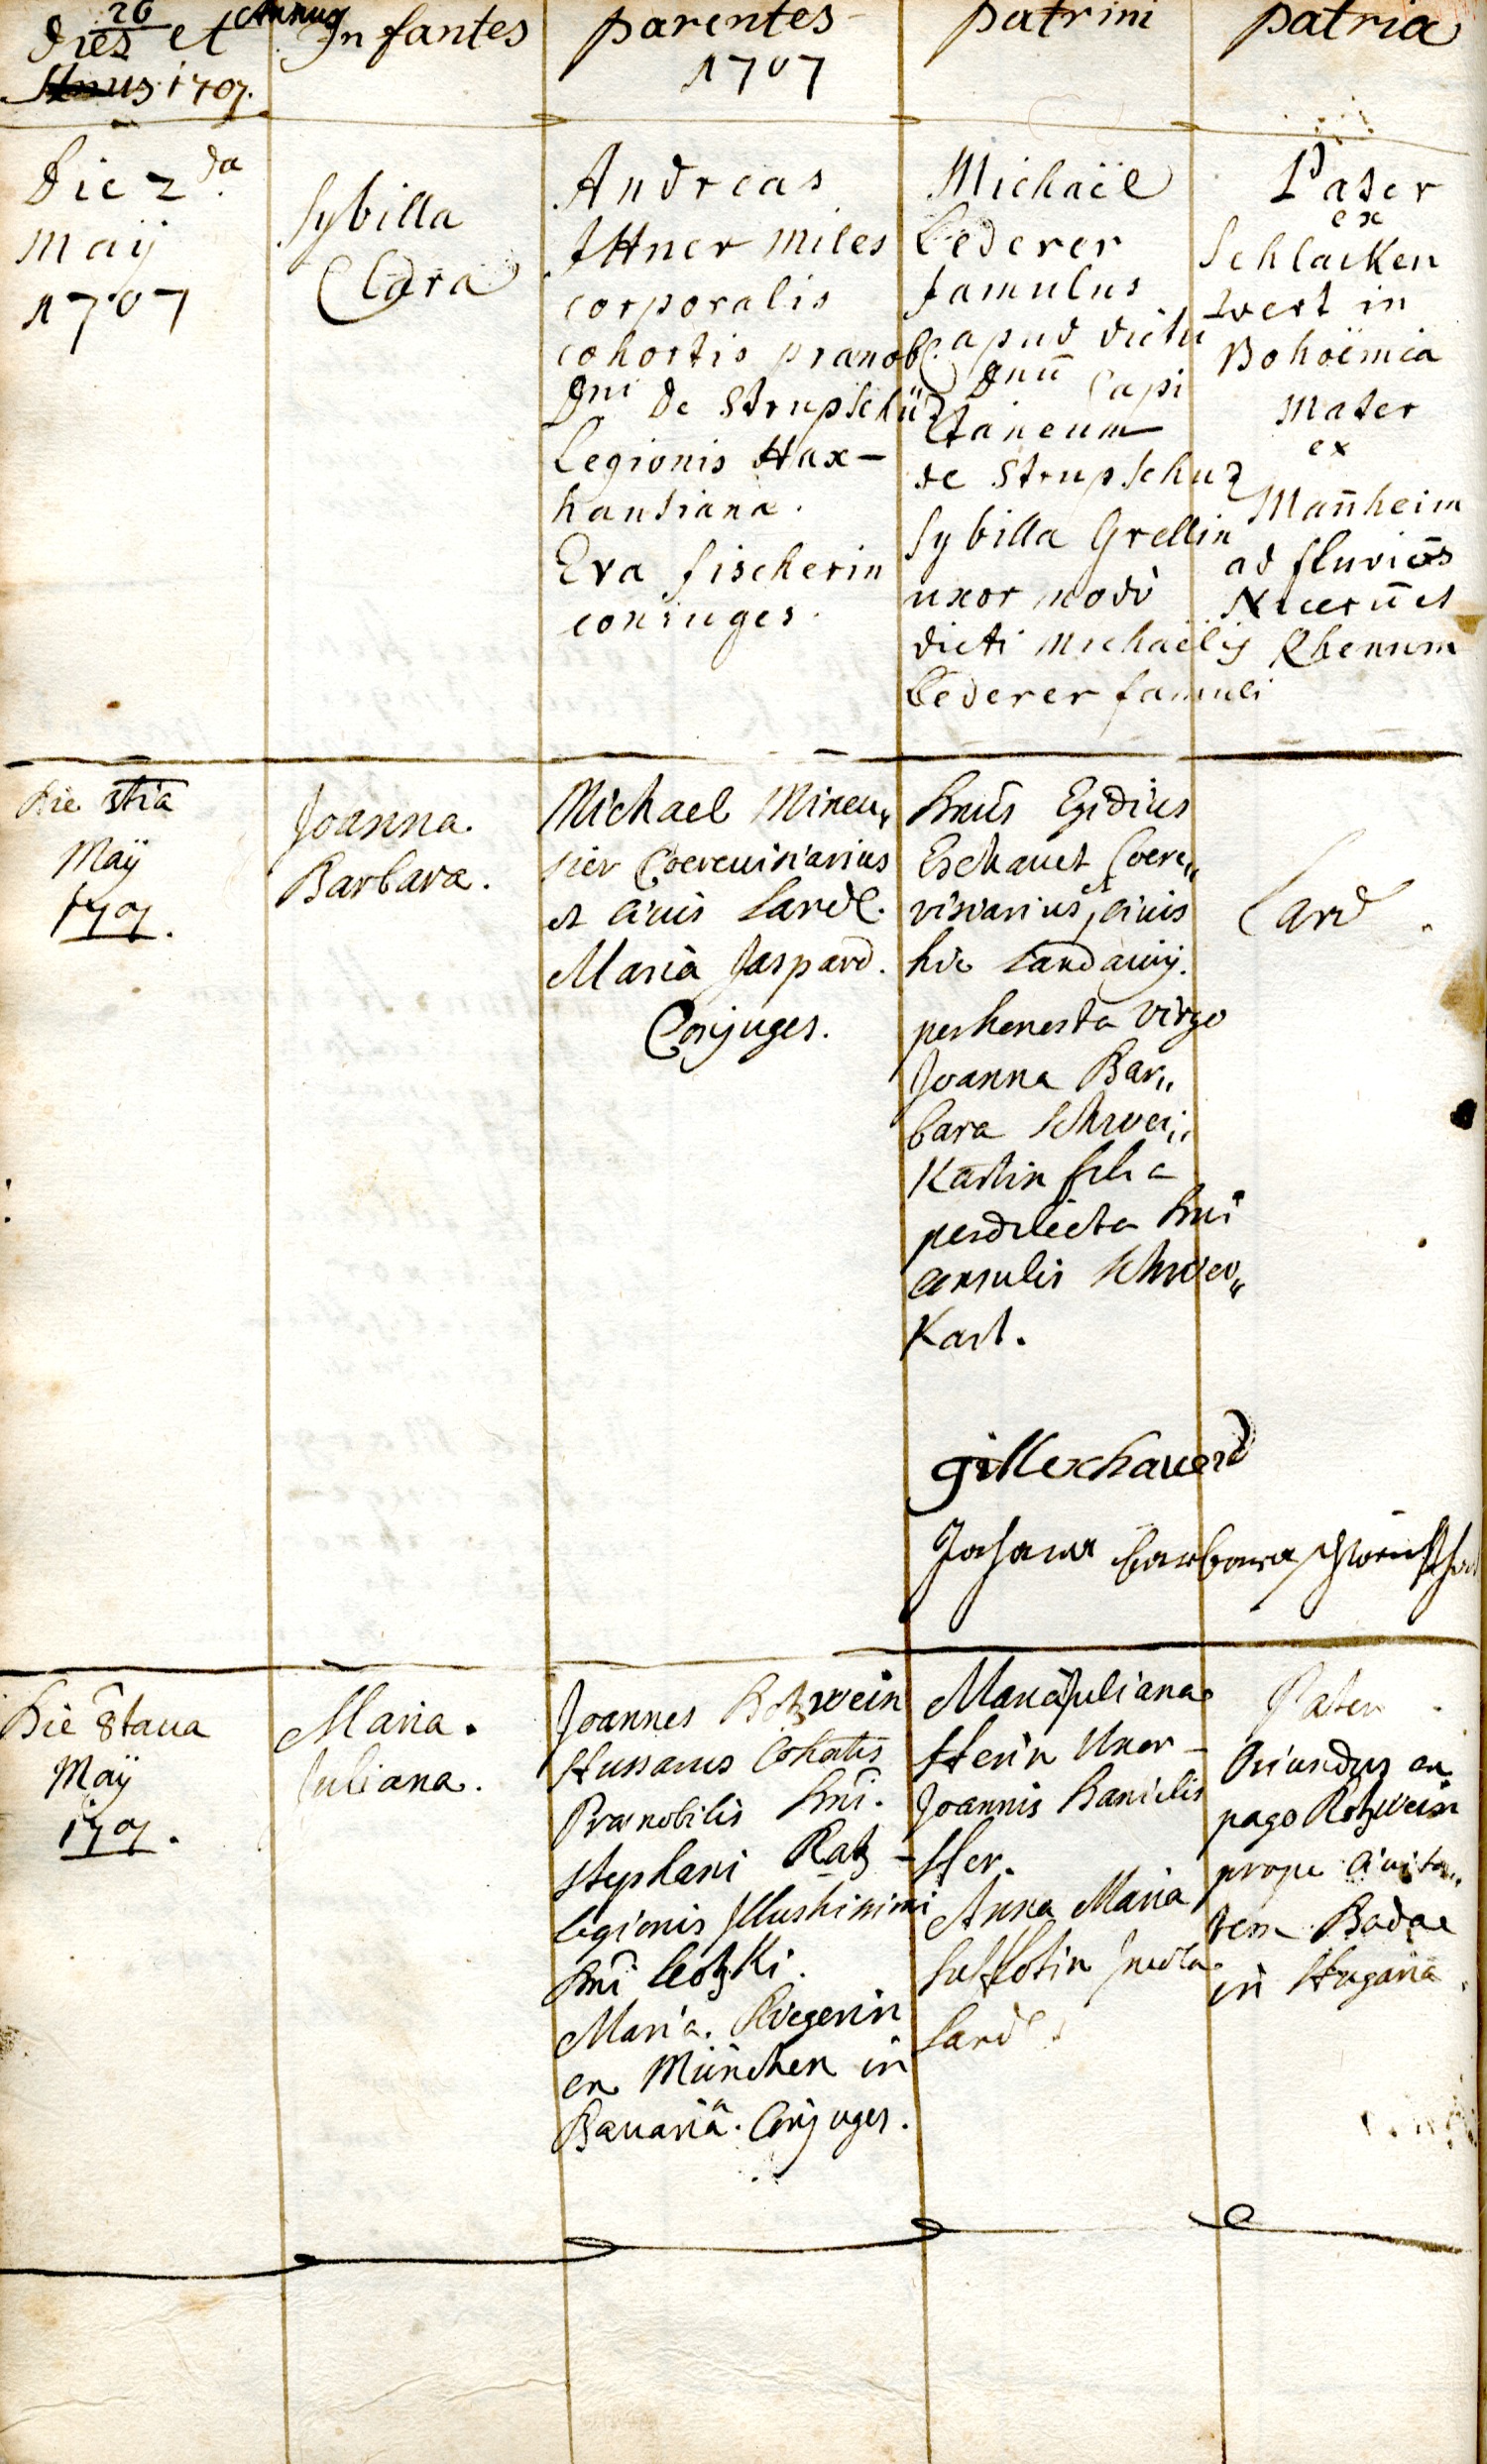 26
Dies et Annus
Anus 1707.
Infantes
parentes
1707
patrini
patria
Die 2da
Maij
1707
Sybilla
Clara
Andreas
Ittner miles
corporalis
cohortis prænobl.
Dni de Strupschüz
Legionis Hax-
hausianæ.
Eva fischerin
coniuges.
Michaël
Lederer
famulus
apud dictū
Dnū Capi
taneum
de Strupschuz
Sybilla Grellin
uxor modò
dicti Michaëlis
Lederer famuli
Pater
ex
Schlacken
wert in
Bohöemia
Mater
ex
Man̄heim
ad fluvios
Nicerū et
Rhenum
Die 5tia
Maÿ
1707.
Joanna
Barbara.
Michael Mineu„
sier Coerevisiarius
et civis Land.
Maria Jaspard.
Conjuges.
Dnūs Egidius
Eschauet Cere„
visiarius, et civis
hic Landavij.
perhonesta virgo
Joanna Bar„
bara Schwei„
Kartin filia
perdilecta Dni
consulis Schwei„
Kart.
Land.
gille chaued
Johanna barbara
Die 8taua
Maÿ
1707.
Maria.
Juliana.
Joannes Rotzwein
Hussarus Cohortis
Prænobilis Dni.
Stephani Ratz-
legionis Illustrissimi
Dni Lotzki.
Maria. Kriegerin
ex München in
Bauariâ. Conjuges.
Maria Juliana
Herin Uxor
Joannis Danielis
Her.
Anna Maria
Land.
Pater
Oriundus ex
pago Rotzwein
prope ciuita„
tem Badae
in Hugariâ.